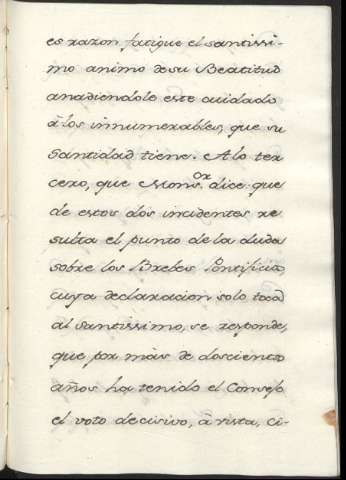 es razon fatigue el santissi-
mo animo de su Beatitud
anadiendole este cuidado
â los innumerables, que su
Santidad tiene. A lo ter
cero, que Mons.or dice que
de estos dos incidentes re
sulta el punto de la duda
sobre los Brebes Pontificios,
cuya declaracion solo toca
al Santissimo, se responde,
que por más de doscientos
años ha tenido el Consejo
el voto decisivo, â vista, ci-